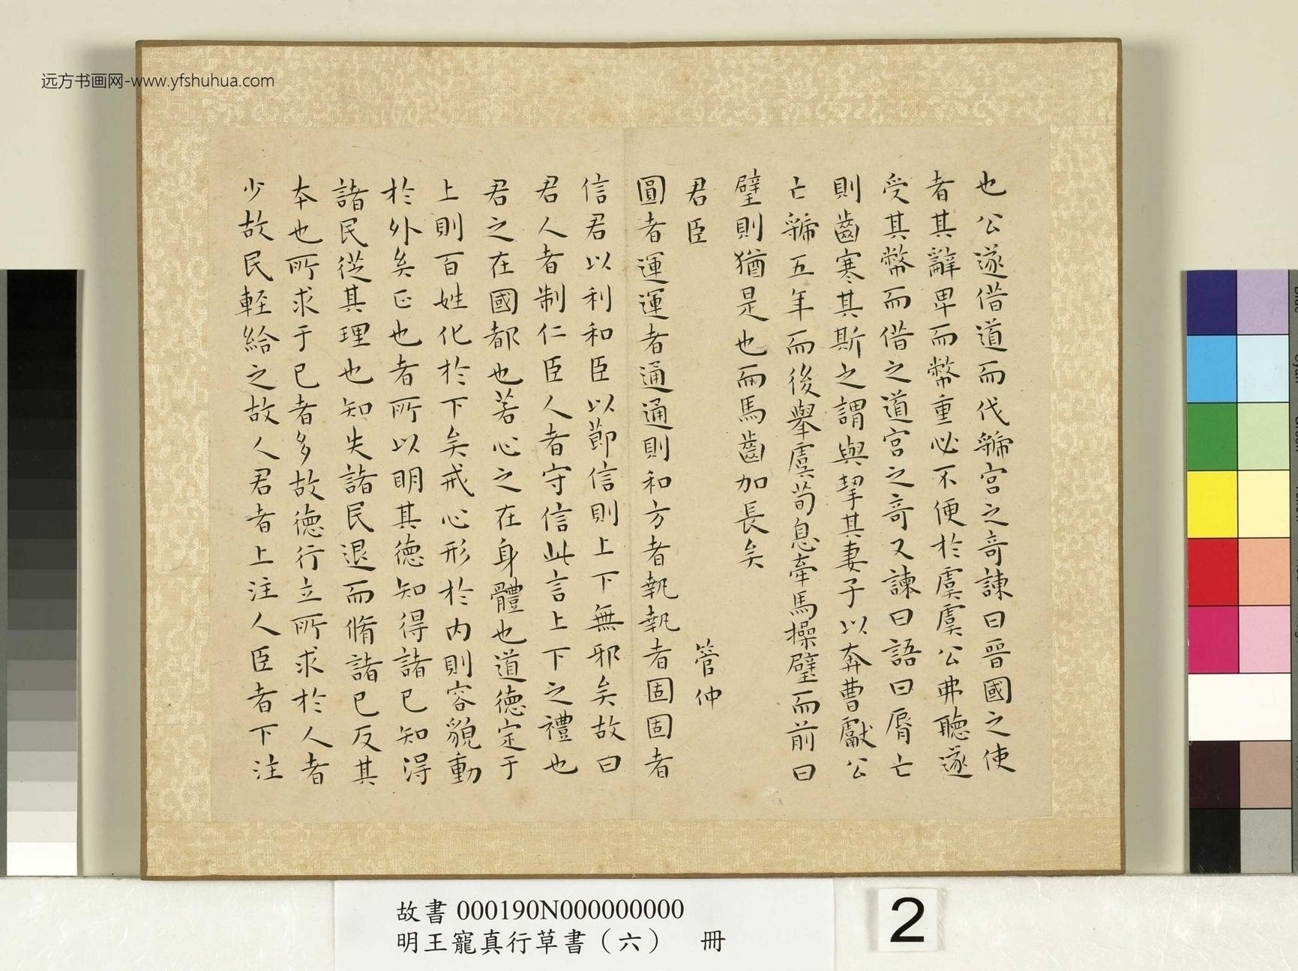 远方书画网-www.yfshuhua.com
也公遂借道而伐虢宮之奇諫曰晉國之使
者其辭卑而幣重必不便於虞虞公弗聽遂
受其幣而借之道宮之奇又諫曰語曰脣亡
則齒寒其斯之謂與挈其妻子以奔曹獻公
亡虢五年而後舉虞荀息牽馬操璧而前曰
璧則猶是也而馬齒加長矣
君臣 管仲
圓者運運者通通則和方者執執者固固者
信君以利和臣以節信則上下無邪矣故曰
君人者制仁臣人者守信此言上下之禮也
君之在國都也若心之在身體也道德定于
上則百姓化於下矣戒心形於内則容貌動
於外矣正也者所以明其德知得諸己知得
諸民從其理也知失諸民退而脩諸己反其
本也所求于己者多故德行立所求於人者
少故民輕給之故人君者上注人臣者下注
故書 000190N000000000
明王寵真行草書（六） 冊
2